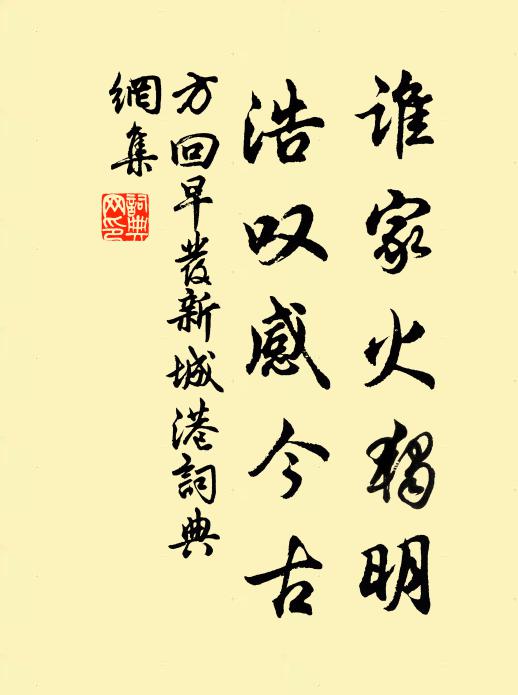 谁家火独明
浩叹感今古
方回早發新城港詞典
網集
詞典网印